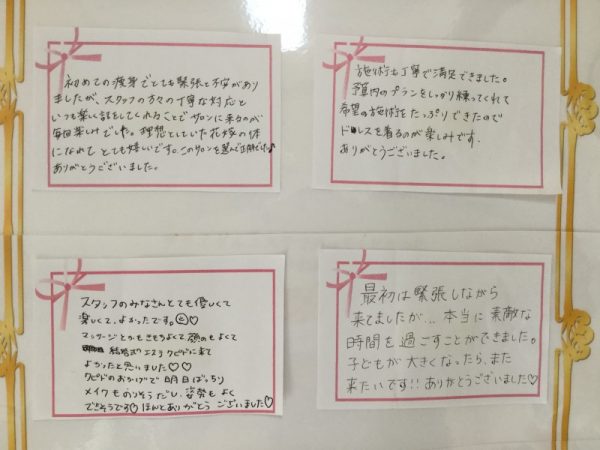 初めての痩身でとても緊張と不安があり
ましたが、スタッフの方々の丁寧な対応と
いつも楽しく話をしてくれることでサロンに来るのが
毎回楽しみでした。理想としていた花嫁の体
になれて とても嬉しいです。このサロンを選んで正解でした♪
ありがとうございました。
施術も丁寧で満足できました。
予算内のプランをしっかり練ってくれて
希望の施術を たっぷりできたので
ドレスを着るのが楽しみです.
ありがとうございました。
スタッフのみなさんとても優しくて
楽しくて、よかったです。♡
マッサージとかもきもちよくて 顔のもよくて
結婚式 エステ クピドに来て
よかったと思いました♡♡
クピドのおかげで 明日 ばっちり
メイクものりそうだし、姿勢もよく
できそうです♡ ほんとありがとう ございました♡
最初は緊張しながら
来てましたが… 本当に 素敵な
時間を 過ごすことができました。
子どもが 大きくなったら、また
来たいです!! ありがとうございました♡